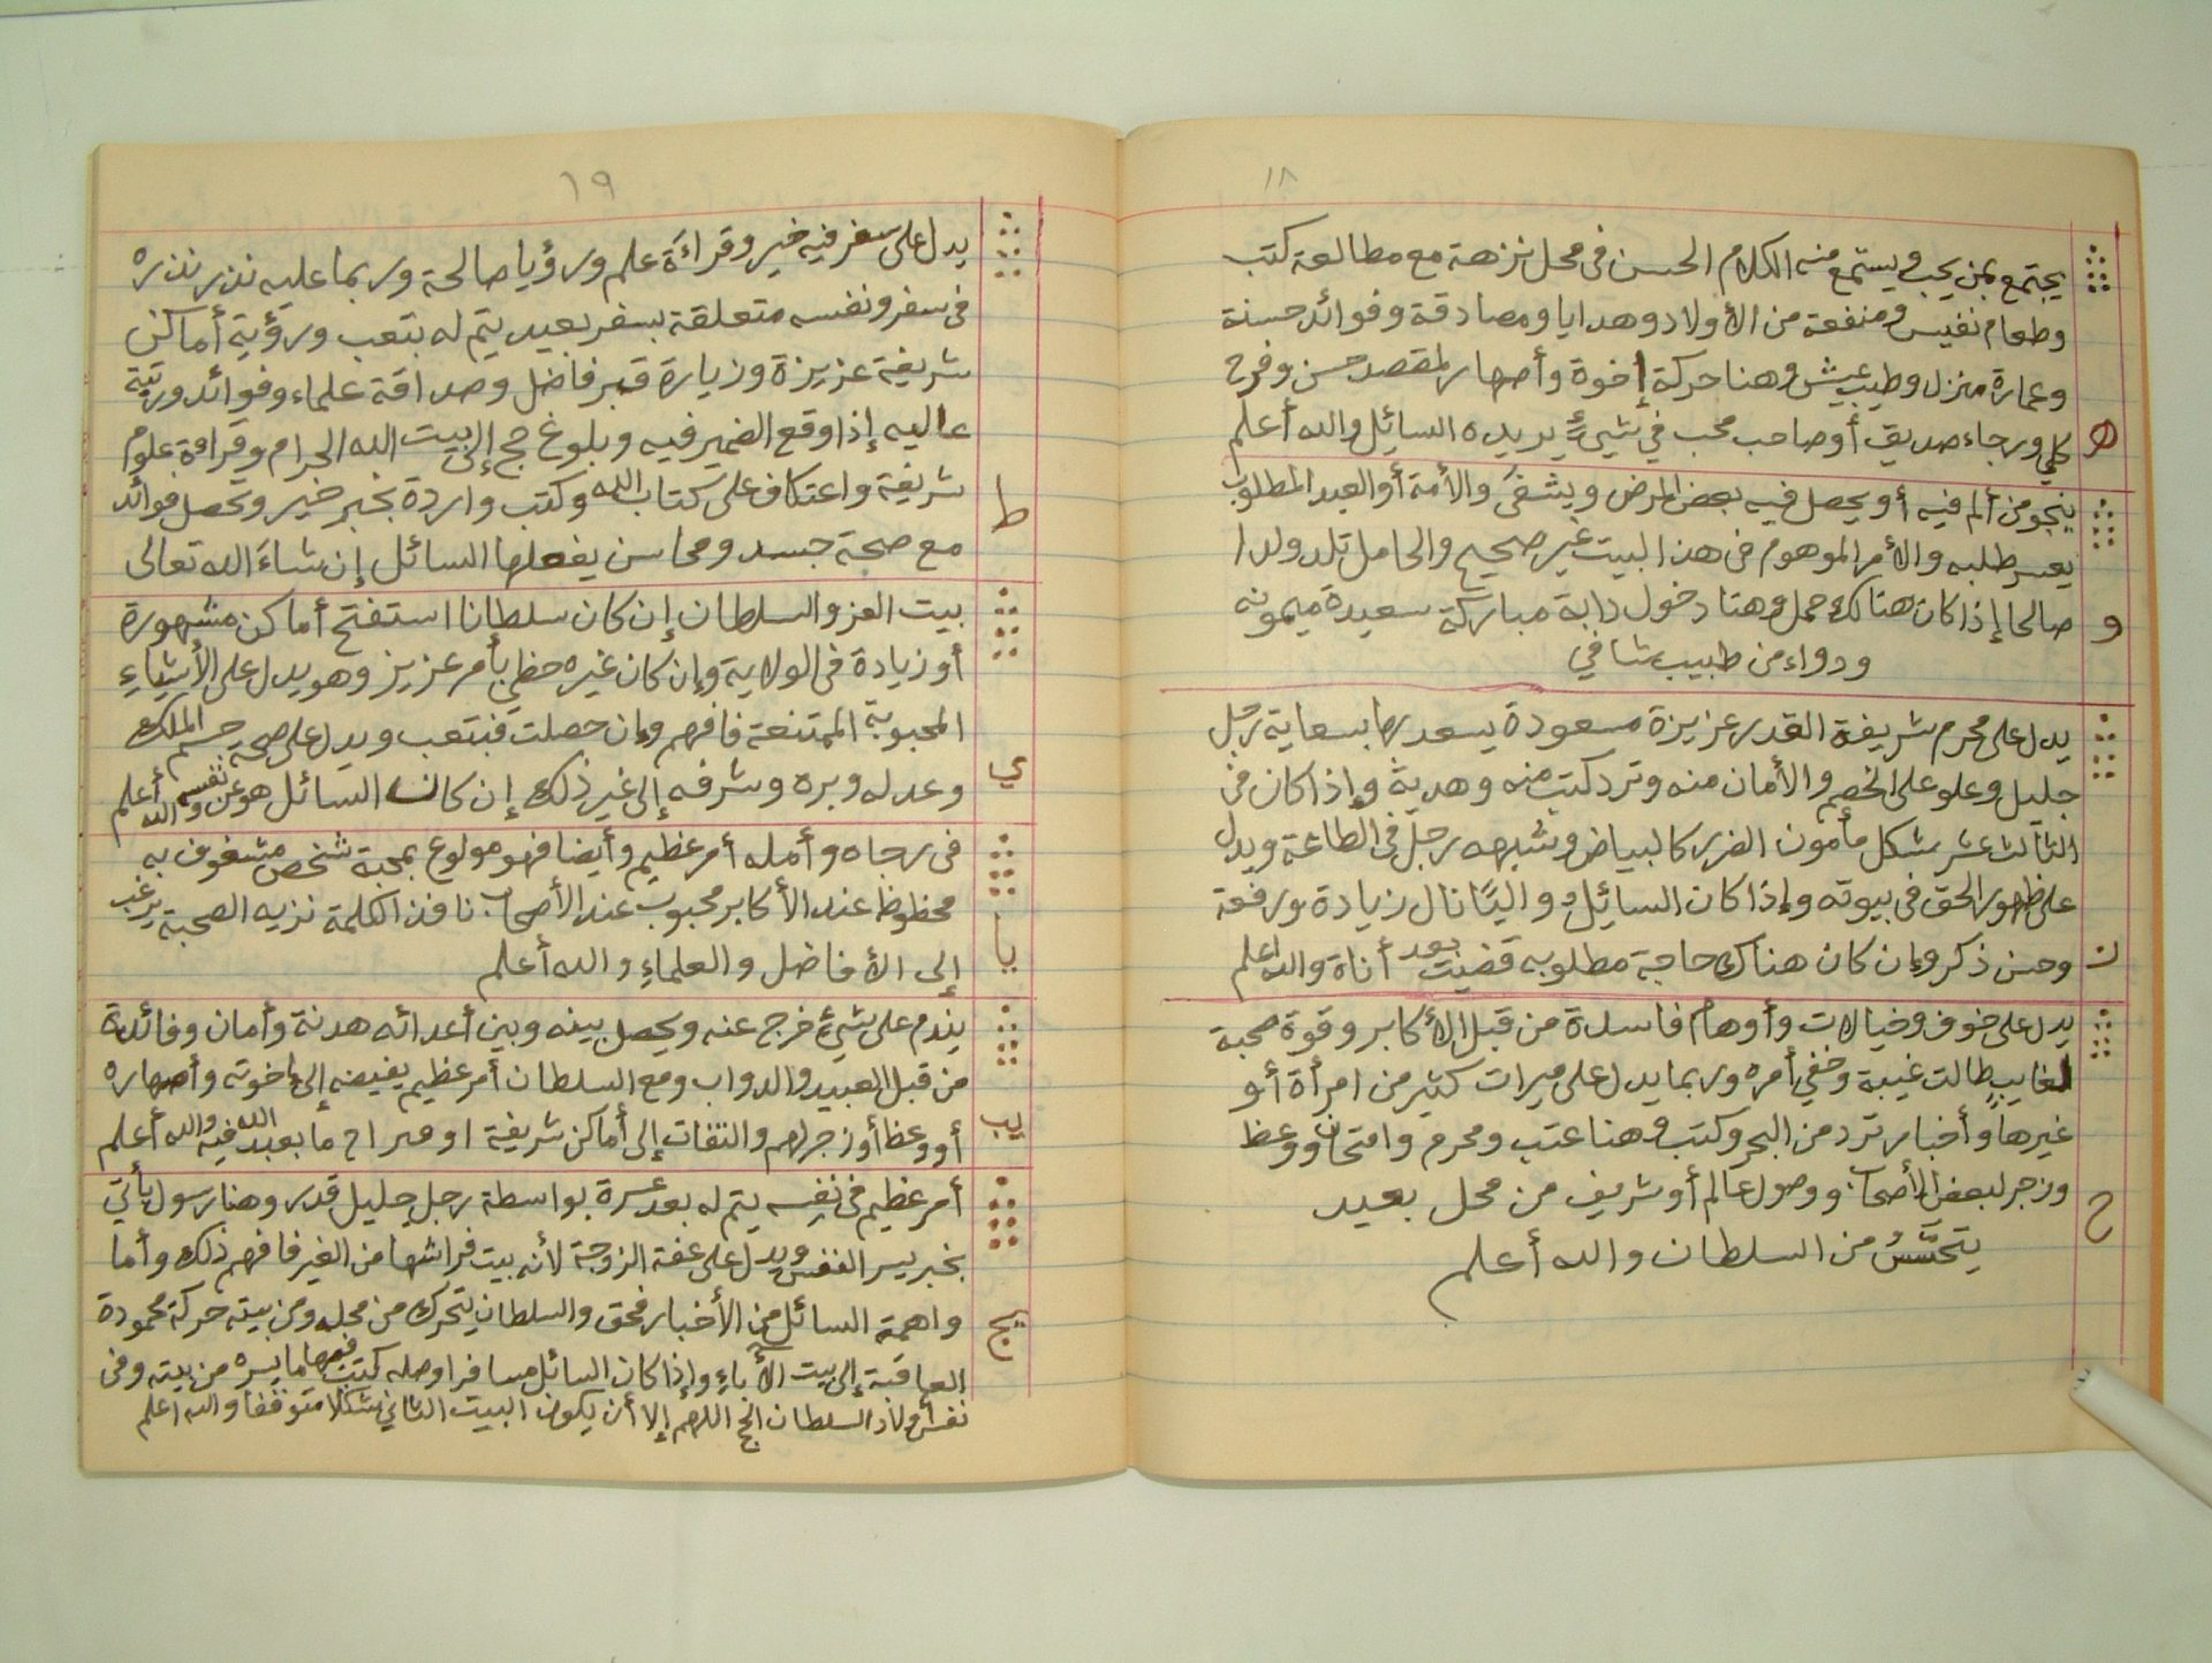 ١٨
يجتمع بمن يحب ويستمع منه الكلام الحسن في محل نزهة مع مطالعة كتب
وطعام نفيس ومنفعة من الأولاد وهدايا ومصادقة وفوائد حسنة
وعمارة منزل وطيب عيش وهنا حركة إخوة وأصهار لمقصد حسن وفرح
ه
كلي ورجاء صديق أو صاحب محب في شيء يريده السائل والله أعلم
ينجو من ألم فيه أو يحصل فيه بعض المرض ويشفى والأمة أو العبد المطلوب
يعسر طلبه والأمر الموهوم في هذا البيت غير صحيح والحامل تلد ولدا
و
صالحا إذا كان هنالك حمل وهنا دخول دابة مباركة سعيدة ميمونه
ودواء من طبيب شافي
يدل على محرم شريفة القدر عزيزة مسعودة يسعد بها بسعاية رجل
جليل وعلو على الخصم والأمان منه وترد كتب منه وهدية وإذا كان في
الثالث عشر شكل مأمون الضرر كالبياض وشبهه رجل في الطاعة ويدل
على ظهور الحق في بيوته وإذا كان السائل واليًا نال زيادة ورفعة
ز
وحسن ذكر وإن كان هناك حاجة مطلوبه قضيت بعد أناة والله اعلم
يدل على خوف وخيالات وأوهام فاسدة من قبل الأكابر وقوة محبة
لغايب طالت غيبة وخفي أمره وربما يدل على ميراث كثير من امرأة أو
غيرها وأخبار ترد من البحر وكتب وهنا عتب ومحرم وامتحان ووعظ
ح
وزجر لبعض الأصحاب ووصول عالم أو شريف من محل بعيد
يتحسَّسُ من السلطان والله أعلم
١٩
يدل على سفر فيه خير وقراءَة علم ورؤيا صالحة وربما عليه نذر نذره
في سفر ونفسه متعلقة بسفر بعيد يتم له بتعب ورؤية أماكن
شريفة عزيزة وزيارة قبر فاضل وصداقة علماء وفوائد ورتبة
عاليه إذا وقع الضمير فيه وبلوغ حج إلى بيت الله الحرام وقراءة علوم
ط
شريفة واعتكاف على كتاب الله وكتب واردة بخبر خير وتحصل فوائد
مع صحة جسد ومحاسن يفعلها السائل إن شاءَ الله تعالى
بيت العز والسلطان إن كان سلطانا استفتح أماكن مشهورة
أو زيادة في الولاية وإن كان غيره حظي بأمر عزيز وهو يدل على الأشياءِ
المحبوبة الممتنعة فافهم وإن حصلت فبتعب ويدل على صحة جسم الملك
ي
وعدله وبره وشرفه إلى غير ذلك إن كان السائل هو عن نفسه والله أعلم
في رجاه وأمله أمر عظيم وأيضا فهو مولوع بمحبة شخص مشغوف به
محظوظ عند الأكابر محبوب عند الأصحاب نافذ الكلمة نزيه الصحبة يرغب
يا
إلى الأفاضل والعلماءِ والله أعلم
يندم على شيءٍ خرج عنه ويحصل بينه وبين أعدائه هدنة وأمان وفائدة
من قبل العبيد والدواب ومع السلطان أمر عظيم يفيضه إلى إخوته وأصهاره
يب
أو وعظ أو زجر لهم والتفات إلى أماكن شريفة او ما يعبد الله فيه والله أعلم
أمر عظيم في نفسه يتم له بعد عسرة بواسطة رجل جليل قدر وهنا رسول يأتي
بخبر يسر النفس ويدل على عفة الزوجة لأنه بيت فراشها من الغير فافهم ذلك وأما
يج
واهمة السائل من الأخبار فحق والسلطان يتحرك من محله ومن بيته حركة محمودة
العاقبة إلى بيت الأباءِ وإذا كان السائل مسافرا وصله كتب فيها ما يسره من بيته وفي
السلطان اللهم إلا أن يكون البيت الثاني شكلا متوقفا والله اعلم